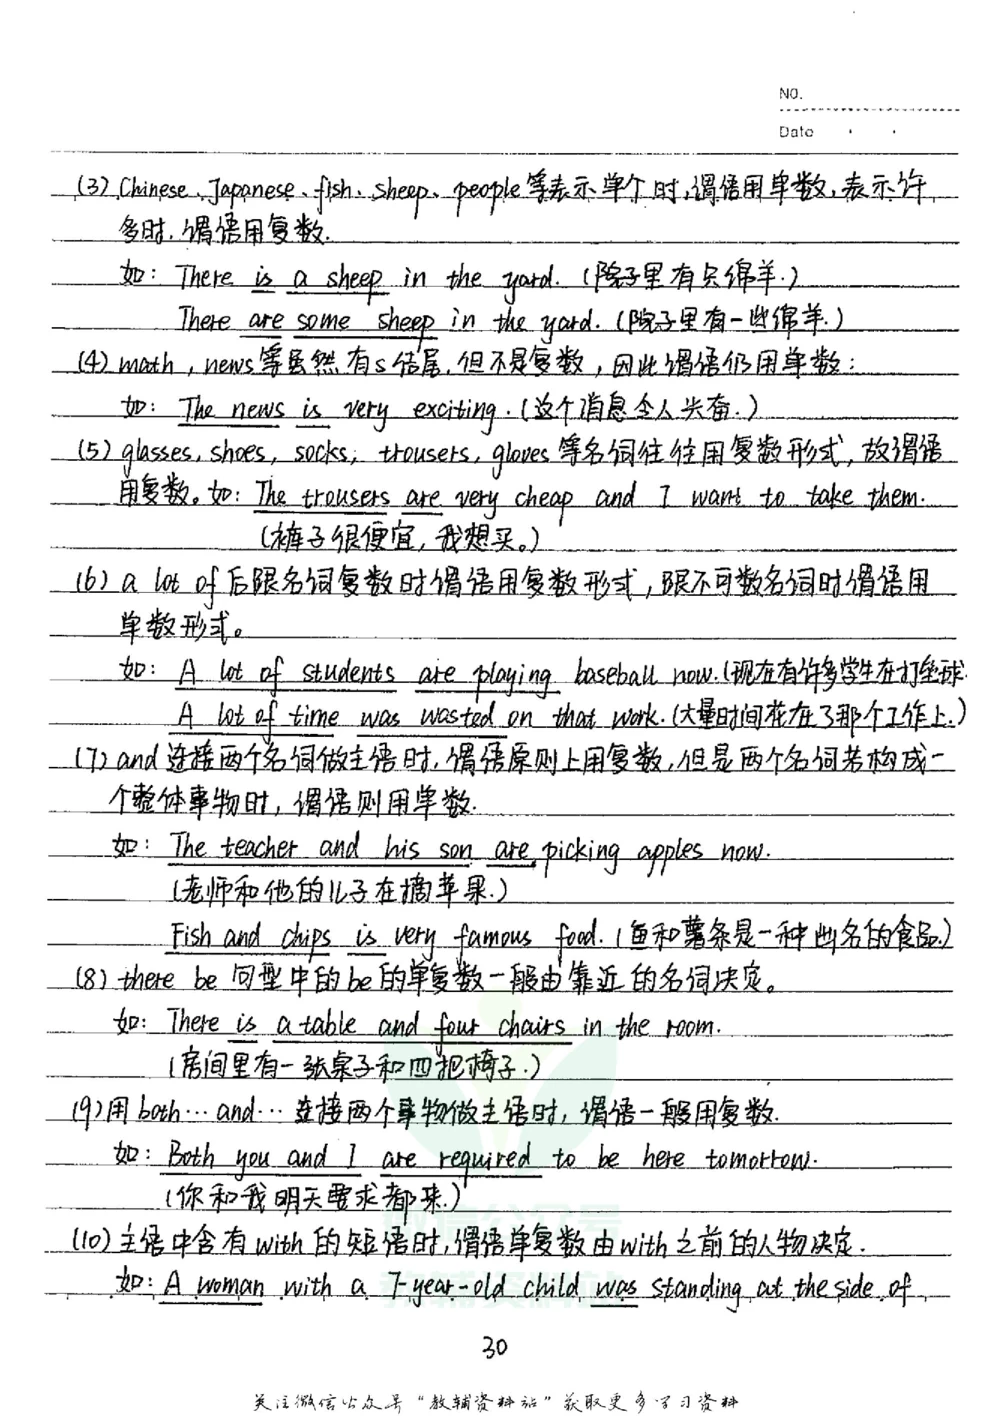 NO.
Date
(3) Chinese、Japanese、fish、sheep、people等表示单个时,谓语用单数,表示许
多时,谓语用复数.
如: There is a sheep in the yard. (院子里有只绵羊.)
There are some sheep in the yard. (院子里有一些绵羊.)
(4) math , news等虽然有s结尾,但不是复数,因此谓语仍用单数:
如: The news is very exciting. (这个消息令人兴奋.)
(5) glasses, shoes, socks, trousers, gloves等名词往往用复数形式,故谓语
用复数。如: The trousers are very cheap and I want to take them.
(裤子很便宜,我想买。)
(6) a lot of后跟名词复数时谓语用复数形式,跟不可数名词时谓语用
单数形式。
如: A lot of students are playing baseball now. (现在有许多学生在打垒球.
A lot of time was wasted on that work. (大量时间花在了那个工作上.)
(7) and连接两个名词做主语时,谓语原则上用复数,但是两个名词若构成一
个整体事物时,谓语则用单数.
如: The teacher and his son are picking apples now.
(老师和他的儿子在摘苹果.)
Fish and chips is very famous food. (鱼和薯条是一种出名的食品.)
(8) there be句型中的be的单复数一般由靠近的名词决定。
如: There is a table and four chairs in the room.
(房间里有一张桌子和四把椅子.)
(9)用both…and…连接两个事物做主语时,谓语一般用复数.
如: Both you and I are required to be here tomorrow.
(你和我明天要求都来.)
(10)主语中含有with的短语时,谓语单复数由with之前的人物决定.
如: A woman with a 7-year-old child was standing at the side of
30
关注微信公众号“教辅资料站”获取更多学习资料